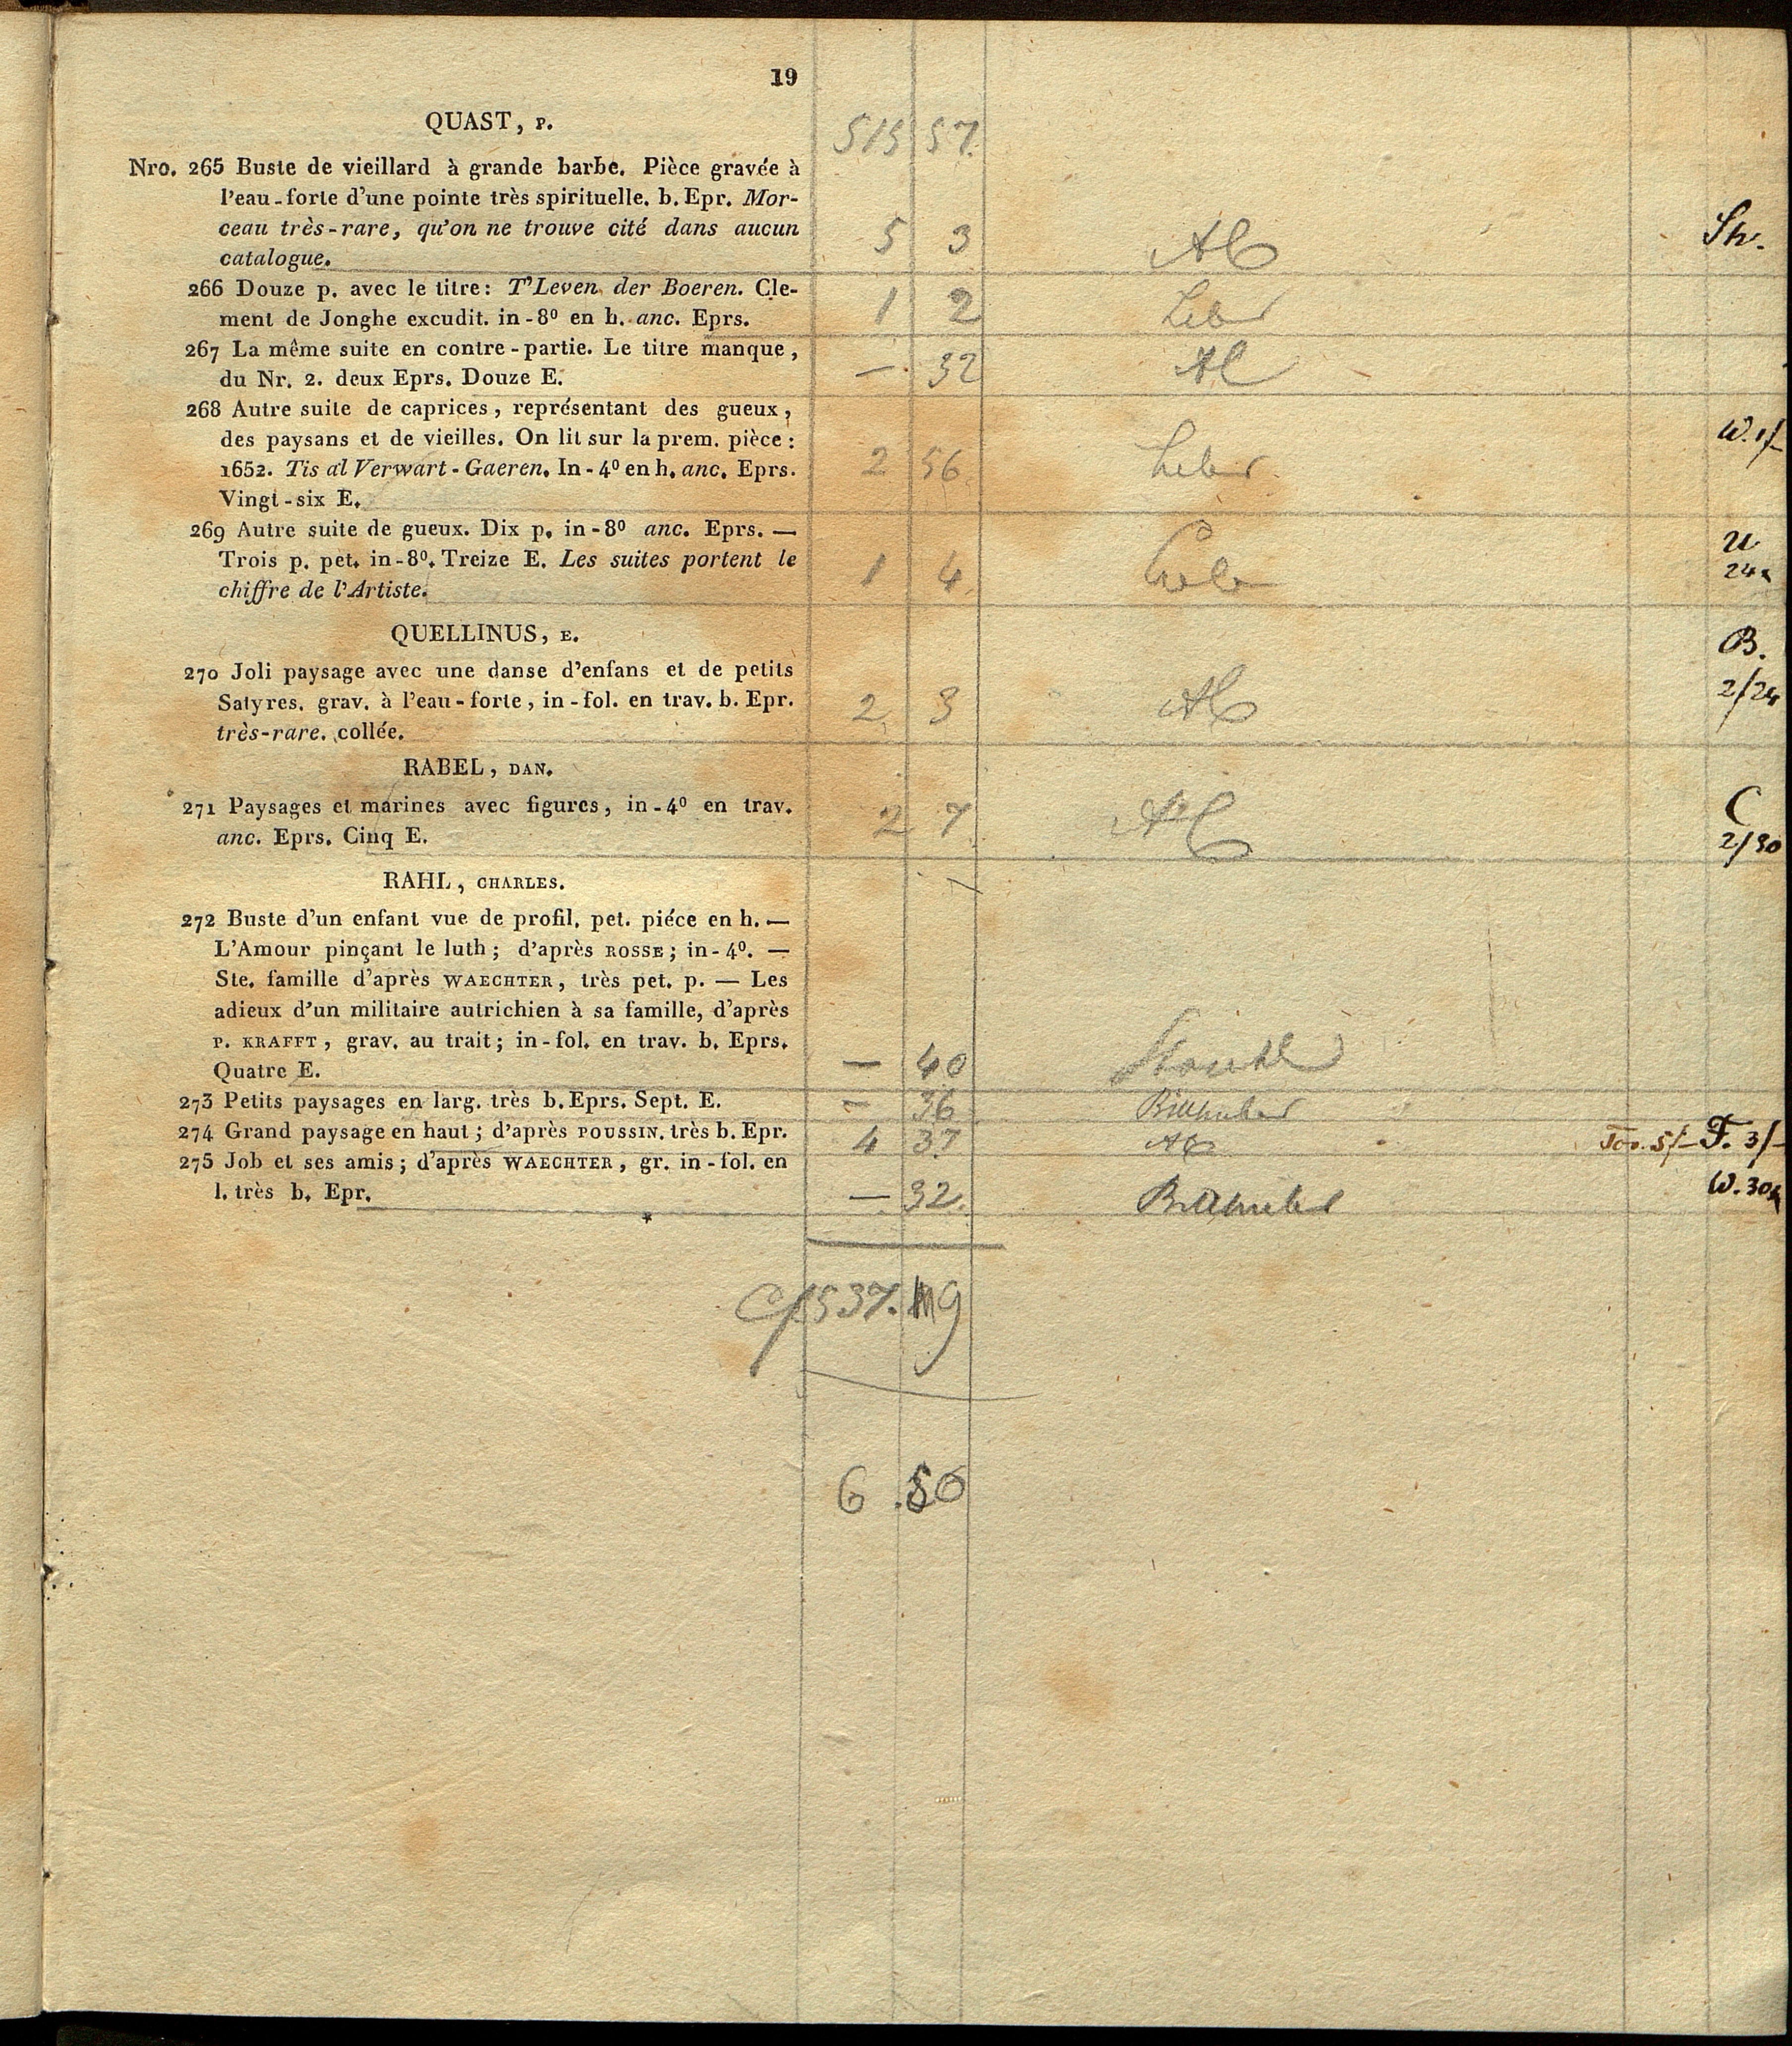 19
QUAST, P.
515 57.
Nro. 265 Buste de vieillard à grande barbe. Pièce gravée à
l'eau-forte d'une pointe très spirituelle. b. Epr. Mor-
ceau très-rare, qu'on ne trouve cité dans aucun
catalogue. 5 3
266 Douze p. avec le titre: T'Leven der Boeren. Cle-
ment de Jonghe excudit. in-8⁰ en h. anc. Eprs. 1 2
267 La même suite en contre-partie. Le titre manque,
du Nr. 2. deux Eprs. Douze E. — 32
268 Autre suite de caprices, représentant des gueux,
des paysans et de vieilles. On lit sur la prem. pièce: W. 1/-
1652. Tis al Verwart-Gaeren. In-4⁰ en h. anc. Eprs. 2 56
Vingt-six E.
269 Autre suite de gueux. Dix p. in-8⁰ anc. Eprs. —
Trois p. pet. in-8⁰. Treize E. Les suites portent le 1 4
chiffre de l'Artiste.
QUELLINUS, E.
B.
270 Joli paysage avec une danse d'enfans et de petits
Satyres. grav. à l'eau-forte, in-fol. en trav. b. Epr. 2 3 2/24
très-rare. collée.
RABEL, DAN.
271 Paysages et marines avec figures, in-4⁰ en trav. 2 7 C
anc. Eprs. Cinq E. 2/30
RAHL, CHARLES.
272 Buste d'un enfant vue de profil. pet. piéce en h. —
L'Amour pinçant le luth; d'après ROSSE; in-4⁰. —
Ste. famille d'après WAECHTER, très pet. p. — Les
adieux d'un militaire autrichien à sa famille, d'après
P. KRAFFT, grav. au trait; in-fol. en trav. b. Eprs.
Quatre E. — 40
273 Petits paysages en larg. très b. Eprs. Sept. E. — 36
274 Grand paysage en haut; d'après POUSSIN. très b. Epr. 4 37 F. 3/-
275 Job et ses amis; d'après WAECHTER, gr. in-fol. en
l. très b. Epr. — 32. W. 30
*
537. 9
6 .50